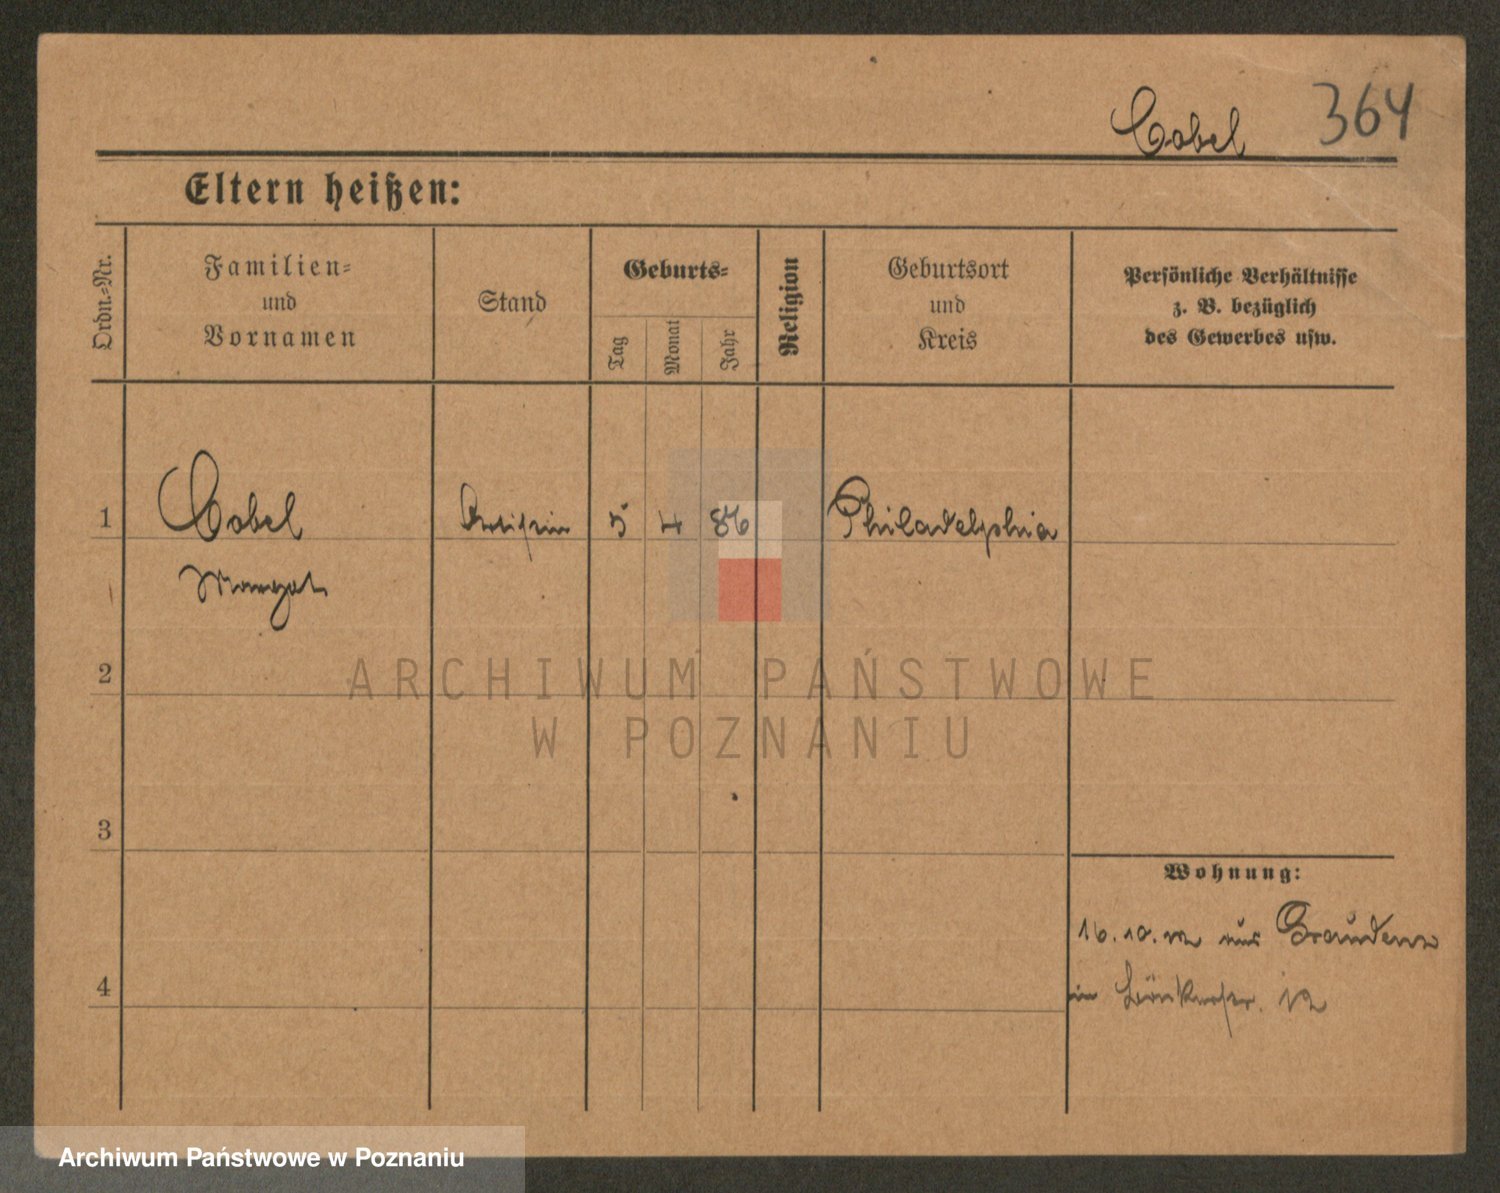 Cobel 364
Eltern heißen:
Ordn.-Nr.
Familien-
und
Vornamen
Stand
Geburts-
Tag
Monat
Jahr
Religion
Geburtsort
und
Kreis
Persönliche Verhältnisse
z. B. bezüglich
des Gewerbes usw.
1 Cobel Artistin 5 4 86 Philadelphia
Margot
2
ARCHIWUM PAŃSTWOWE
W POZNANIU
3
Wohnung:
16.10.12 aus Graudenz
4
in 12
Archiwum Państwowe w Poznaniu